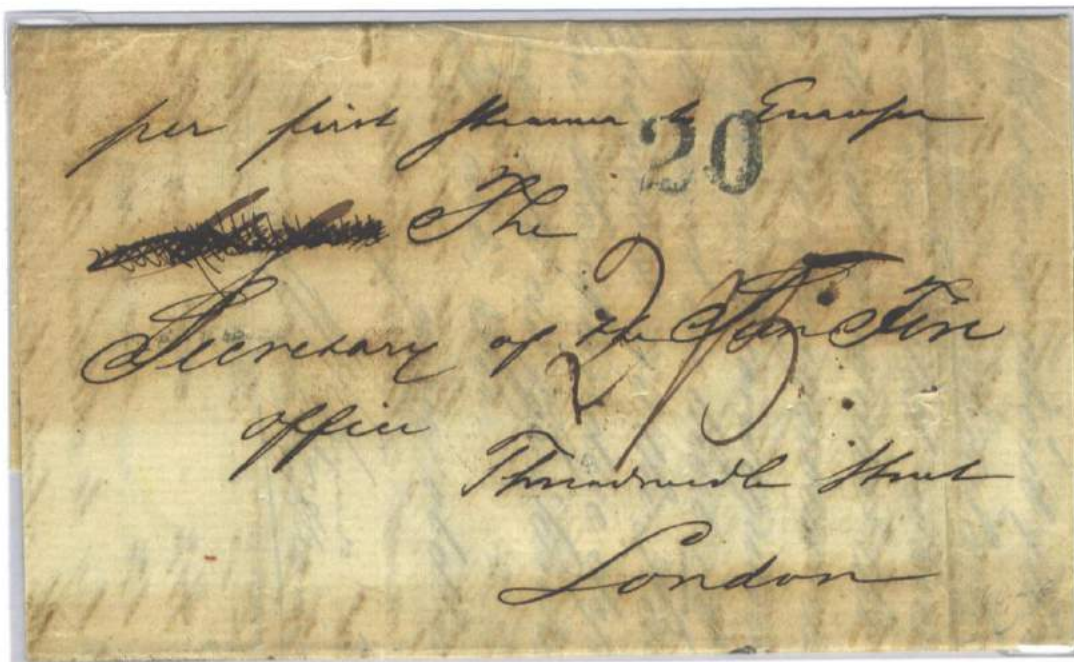 per first steamer to Europe
20
The
Secretary of the Sun Fire
2/5
office
Threadneedle Street
London